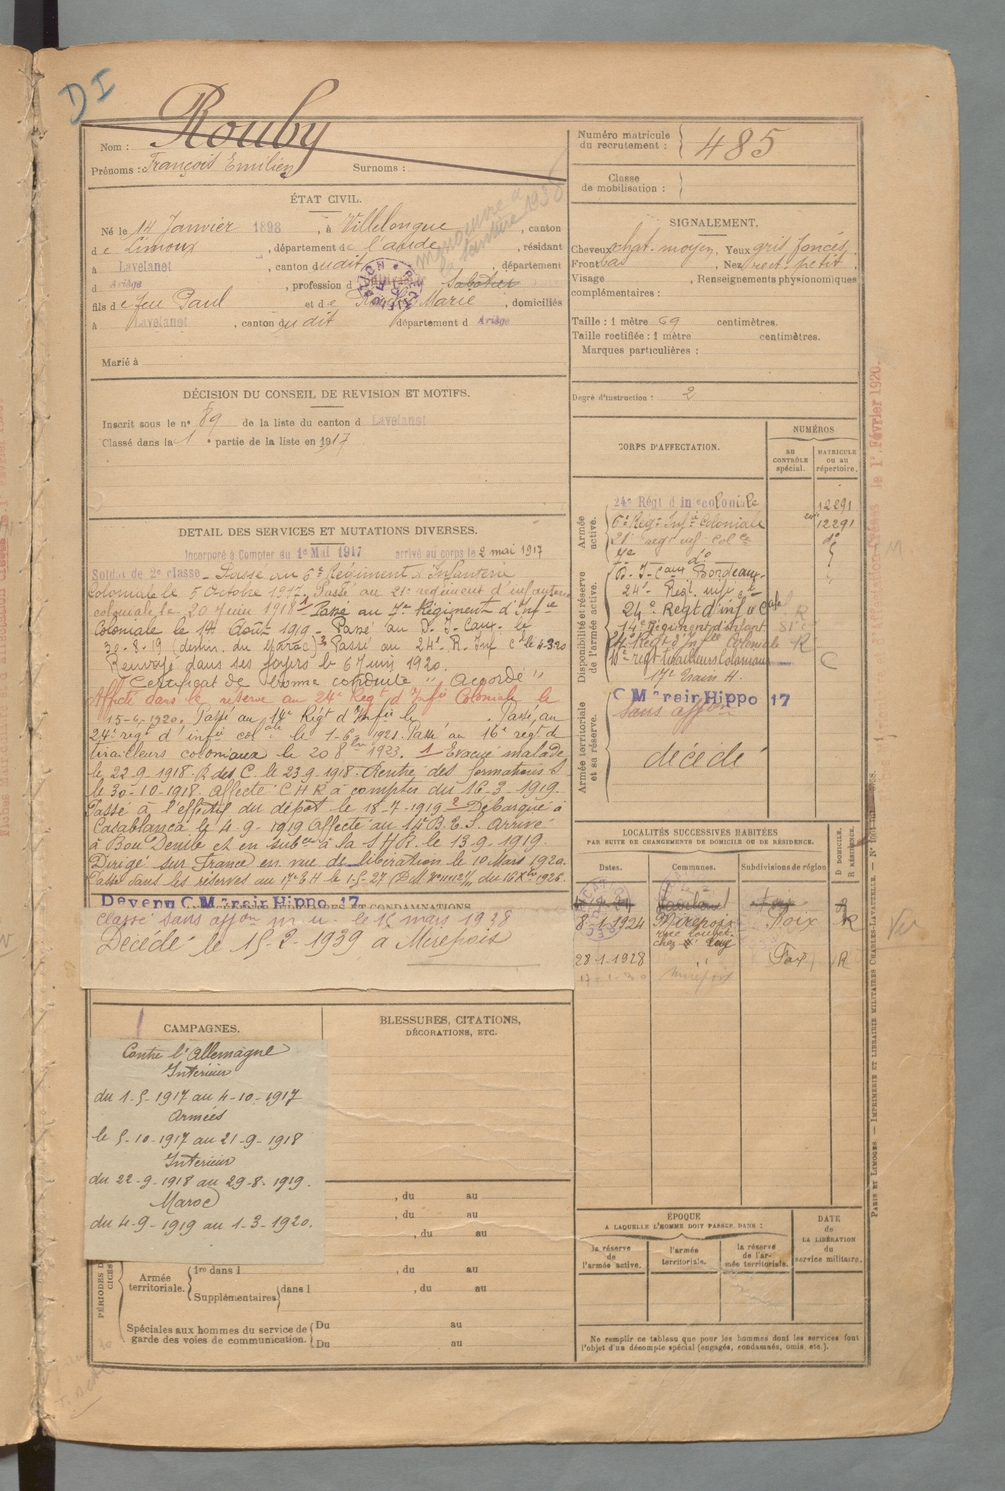 DI
Rouby
Nom :
Prénoms : François Emilien Surnoms :
ÉTAT CIVIL.
Né le 14 Janvier 1898, à Villelongue, canton
de Limoux, département de l'aude, résidant
à Lavelanet, canton dudit, département
d Ariège, profession d Sabotier
fils de feu Paul et de Marie, domiciliés
à Lavelanet, canton dudit département d Ariège
Marié à
DÉCISION DU CONSEIL DE REVISION ET MOTIFS.
Inscrit sous le n° 89 de la liste du canton d Lavelanet
Classé dans la 1e partie de la liste en 1917
DETAIL DES SERVICES ET MUTATIONS DIVERSES.
Incorporé à Compter du 1er Mai 1917 arrivé au corps le 2 mai 1917
Soldat de 2e classe - Passé au 6e Régiment d'Infanterie
Coloniale le 5 Octobre 1917. Passé au 21e régiment d'infanterie
coloniale le 20 Juin 1918 1 Passé au 7e Régiment d'Infie
Coloniale le 14 Août 1919 - Passé au D. I. Cam. le
30-8-19 (demn. du Maroc) 2 Passé au 24e R. Inf Cle le 4-3-20
Renvoyé dans ses foyers le 6 Juin 1920.
Certificat de bonne conduite "Accordé"
Affecté dans la réserve au 24e Regt d'Infie Coloniale le
15-6-1920. Passé au 14e Régt d'Infie le . Passé au
24e régt d'infie colale le 1-6-1921. Passé au 16e régt de
tirailleurs coloniaux le 20 8bre 1923. 1 Evacué malade
le 22-9-1918. R. des C. le 23-9-1918. Rentre des formations S.
le 30-10-1918. Affecté C H R à compter du 16-3-1919.
Passé à l'effectif du dépôt le 18-7-1919. 2 Débarqué à
Casablanca le 4-9-1919 Affecté au 14e B.E.S. Arrivé
à Bou Denib et en subce à la S H R. le 13-9-1919.
Dirigé sur France en vue de libération le 10 Mars 1920.
Passé dans les réserves au 17e E H le 1-5-27
Devenu C.M are ir Hippo 17
Classé sans affon le 15 mars 1938
Décédé le 15-2-1939 à Mirepoix
CAMPAGNES.
Contre l'Allemagne
Intérieur
du 1-5-1917 au 4-10-1917
Armées
le 5-10-1917 au 21-9-1918
Intérieur
du 22-9-1918 au 29-8-1919.
Maroc
du 4-9-1919 au 1-3-1920.
BLESSURES, CITATIONS,
DÉCORATIONS, ETC.
, du au
, du au
, du au
PÉRIODES D
Armée
territoriale.
1re dans l , du au
Supplémentaires dans l , du au
Spéciales aux hommes du service de
garde des voies de communication.
Du au
Du au
Numéro matricule
du recrutement : 485
Classe
de mobilisation :
SIGNALEMENT.
Cheveux chat. moyen, Yeux gris foncés,
Front bas, Nez rect. petit.
Visage , Renseignements physionomiques
complémentaires :
Taille : 1 mètre 69 centimètres.
Taille rectifiée : 1 mètre centimètres.
Marques particulières :
Degré d'instruction : 2
CORPS D'AFFECTATION.
NUMÉROS
au
CONTRÔLE
spécial.
MATRICULE
ou au
répertoire.
Armée
active.
24e Régt d'inf coloniale 12291
6e Régt Infie Coloniale 12291
21e régt inf Colle do
7e do
Disponibilité et réserve
de l'armée active.
D. I. Cam Bordeaux
24e Régt. infie
24e Régt d'infie Cole R
14e Régiment d'Infant
24e Régt d'Infie Coloniale R
16e régt tirailleurs Coloniaux C
17e Train H.
Armée territoriale
et sa réserve.
C M are ir Hippo 17
Sans affon
décédé
LOCALITÉS SUCCESSIVES HABITÉES
PAR SUITE DE CHANGEMENTS DE DOMICILE OU DE RÉSIDENCE.
Dates. Communes. Subdivisions de région
D DOMICILE.
R RÉSIDENCE.
8-1-1924 Mirepoix Foix R
28-1-1928 " Foix R
Mirepoix
ÉPOQUE
A LAQUELLE L'HOMME DOIT PASSER DANS :
la réserve
de
l'armée active.
l'armée
territoriale.
la réserve
de l'ar-
mée territoriale.
DATE
de
LA LIBÉRATION
du
service militaire.
Ne remplir ce tableau que pour les hommes dont les services font
l'objet d'un décompte spécial (engagés, condamnés, omis, etc.).
PARIS ET LIMOGES. — IMPRIMERIE ET LIBRAIRIE MILITAIRES CHARLES-LAVAUZELLE.
le 1er Février 1920.